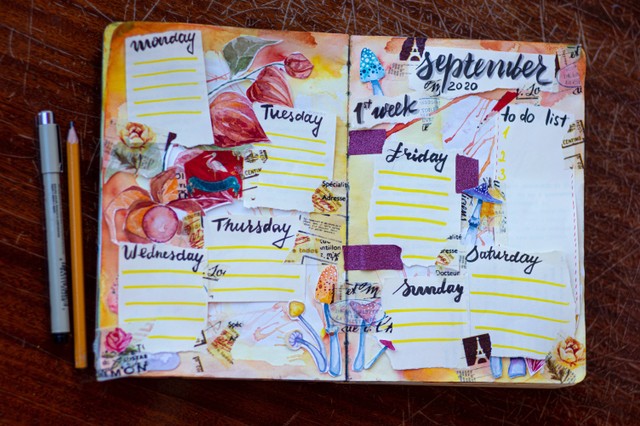 Monday
Tuesday
Thursday
Wednesday
MON
September
2020
1st week
to do list
1
2
3
Friday
Saturday
Sunday
Spécialis
Adresse
Spéc
Docteur